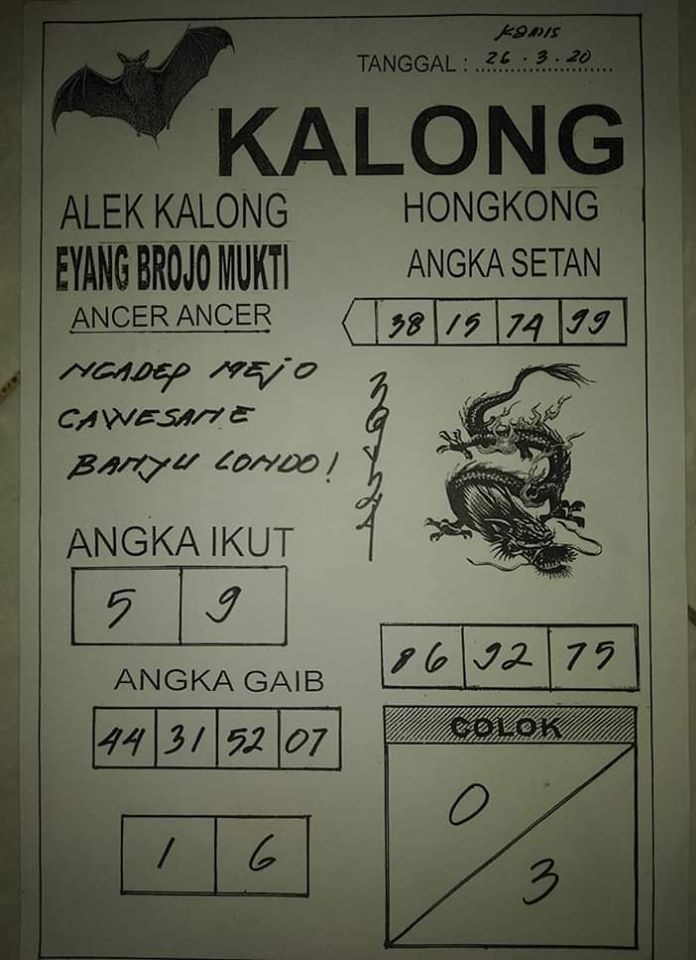 KAMIS
TANGGAL : 26 . 3 . 20
KALONG
ALEK KALONG
HONGKONG
EYANG BROJO MUKTI
ANGKA SETAN
ANCER ANCER
38 15 74 99
NGADEP MEJO
CAWESANE
BANYU LONDO!
ANGKA IKUT
5 9
86 92 75
ANGKA GAIB
44 31 52 07
COLOK
0
1 6
3